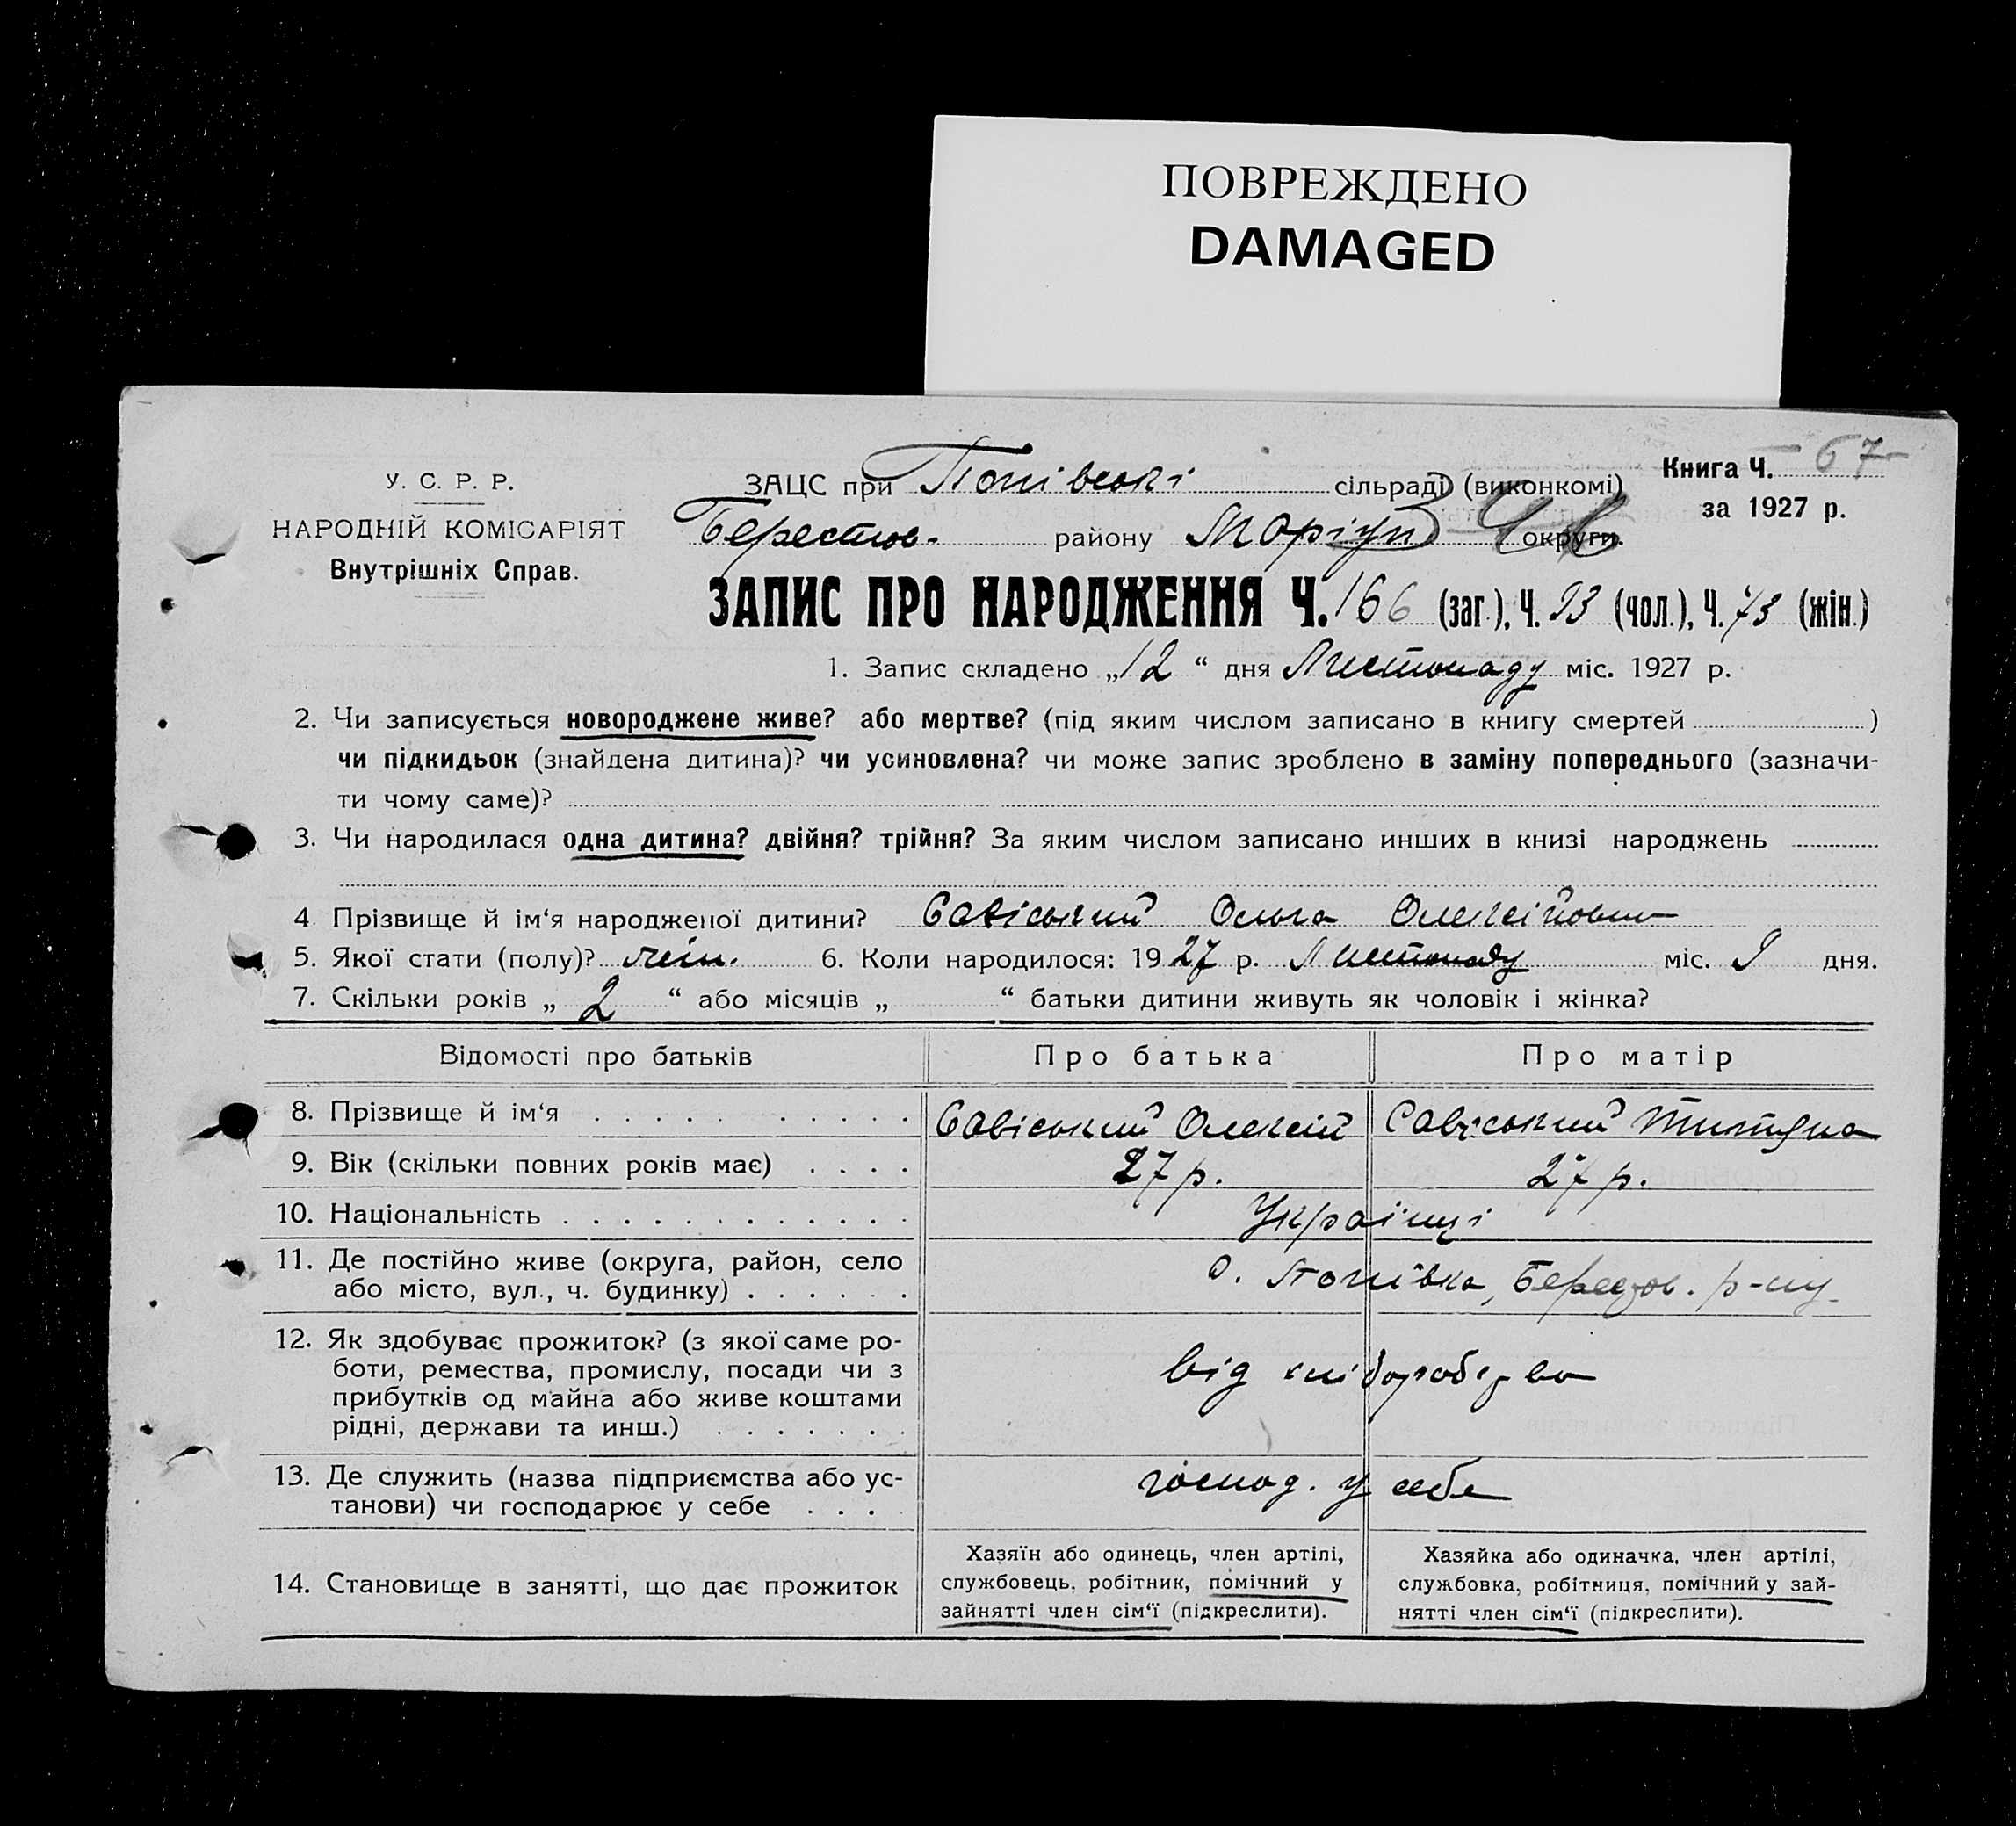 ПОВРЕЖДЕНО
DAMAGED
У. С. Р. Р.
НАРОДНІЙ КОМІСАРІЯТ
Внутрішніх Справ.
ЗАЦС при Попівські сільраді (виконкомі)
Книга Ч. 67
за 1927 р.
Берестов. району Маріуп округи.
ЗАПИС ПРО НАРОДЖЕННЯ Ч. 166 (заг.), Ч. 93 (чол.), Ч. 73 (жін.)
1. Запис складено „12“ дня Листопаду міс. 1927 р.
2. Чи записується новороджене живе? або мертве? (під яким числом записано в книгу смертей )
чи підкидьок (знайдена дитина)? чи усиновлена? чи може запис зроблено в заміну попереднього (зазначи-
ти чому саме)?
3. Чи народилася одна дитина? двійня? трійня? За яким числом записано инших в книзі народжень
4 Прізвище й ім‘я народженої дитини? Савіський Ольга Олексійовна
5. Якої стати (полу)? жін. 6. Коли народилося: 1927 р. Листопаду міс. 9 дня.
7. Скільки років „ 2 “ або місяців „ “ батьки дитини живуть як чоловік і жінка?
Відомості про батьків Про батька Про матір
8. Прізвище й ім‘я Савіський Олексій Савіський Титяна
9. Вік (скільки повних років має) 27 р. 27 р.
10. Національність Українці
11. Де постійно живе (округа, район, село
або місто, вул., ч. будинку) с. Попівка, Берестов. р-ну
12. Як здобуває прожиток? (з якої саме ро-
боти, ремества, промислу, посади чи з
прибутків од майна або живе коштами
рідні, держави та инш.) від хліборобства
13. Де служить (назва підприємства або ус-
танови) чи господарює у себе господ. у себе
14. Становище в занятті, що дає прожиток
Хазяїн або одинець, член артілі,
службовець, робітник, помічний у
зайнятті член сім‘ї (підкреслити).
Хазяйка або одиначка, член артілі,
службовка, робітниця, помічний у зай-
нятті член сім‘ї (підкреслити).